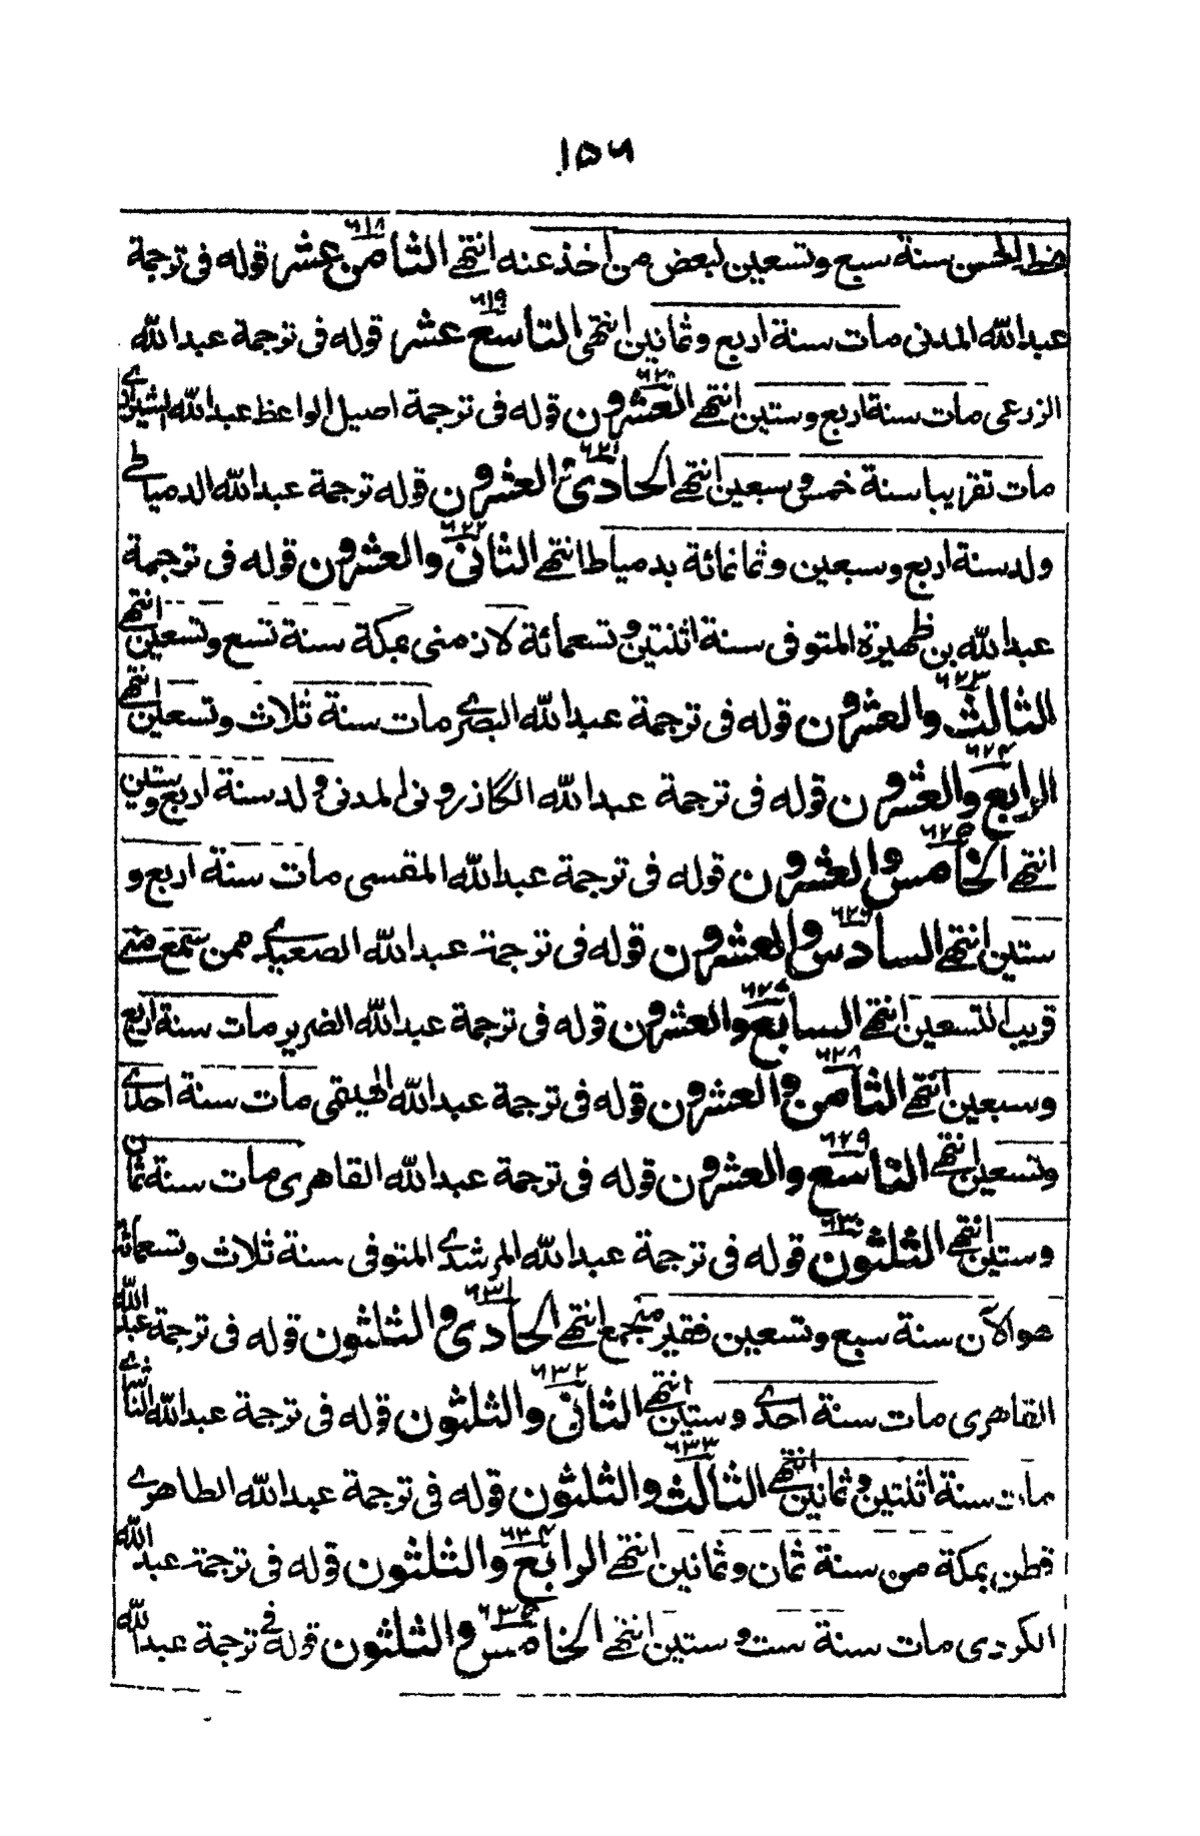 ١٥٦
خط الحسن سنة سبع وتسعين لبعض من اخذ عنه انتهى الثامن عشر ٦١٨ قوله فى ترجمة
عبدالله المدنى مات سنة اربع وثمانين انتهى التاسع عشر ٦١٩ قوله فى ترجمة عبدالله
الزرعى مات سنة اربع وستين انتهى العشرون ٦٢٠ قوله فى ترجمة اصيل الواعظ عبدالله الشيرازى
مات تقريبا سنة خمس وسبعين انتهى الحادى والعشرون ٦٢١ قوله ترجمة عبدالله الدمياطى
ولد سنة اربع وسبعين وثمانمائة بدمياط انتهى الثانى والعشرون ٦٢٢ قوله فى ترجمة
عبدالله بن ظهيرة المتوفى سنة اثنتين وتسعمائة لازمنى بمكة سنة تسع وتسعين انتهى
الثالث والعشرون ٦٢٣ قوله فى ترجمة عبدالله البصرى مات سنة ثلاث وتسعين انتهى
الرابع والعشرون ٦٢٤ قوله فى ترجمة عبدالله الكازرونى المدنى ولد سنة اربع وستين
انتهى الخامس والعشرون ٦٢٥ قوله فى ترجمة عبدالله المقسى مات سنة اربع و
ستين انتهى السادس والعشرون ٦٢٦ قوله فى ترجمة عبدالله الصعيدى ممن سمع منى
قريب التسعين انتهى السابع والعشرون ٦٢٧ قوله فى ترجمة عبدالله الضرير مات سنة اربع
وسبعين انتهى الثامن والعشرون ٦٢٨ قوله فى ترجمة عبدالله الهيقمى مات سنة احدى
وتسعين انتهى التاسع والعشرون ٦٢٩ قوله فى ترجمة عبدالله القاهرى مات سنة ثمان
وستين انتهى الثلثون ٦٣٠ قوله فى ترجمة عبدالله المرشدى المتوفى سنة ثلاث وتسعمائة
هو الآن سنة سبع وتسعين فقير منجمع انتهى الحادى والثلثون ٦٣١ قوله فى ترجمة عبدالله
القاهرى مات سنة احدى وستين انتهى الثانى والثلثون ٦٣٢ قوله فى ترجمة عبدالله
مات سنة اثنتين وثمانين انتهى الثالث والثلثون ٦٣٣ قوله فى ترجمة عبدالله الطاهرى
قطن بمكة من سنة ثمان وثمانين انتهى الرابع والثلثون ٦٣٤ قوله فى ترجمة عبدالله
الكردى مات سنة ست وستين انتهى الخامس والثلثون ٦٣٥ قوله فى ترجمة عبدالله